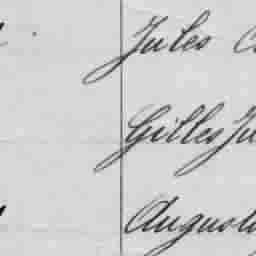 Jules
Gilles Ju
Augustu